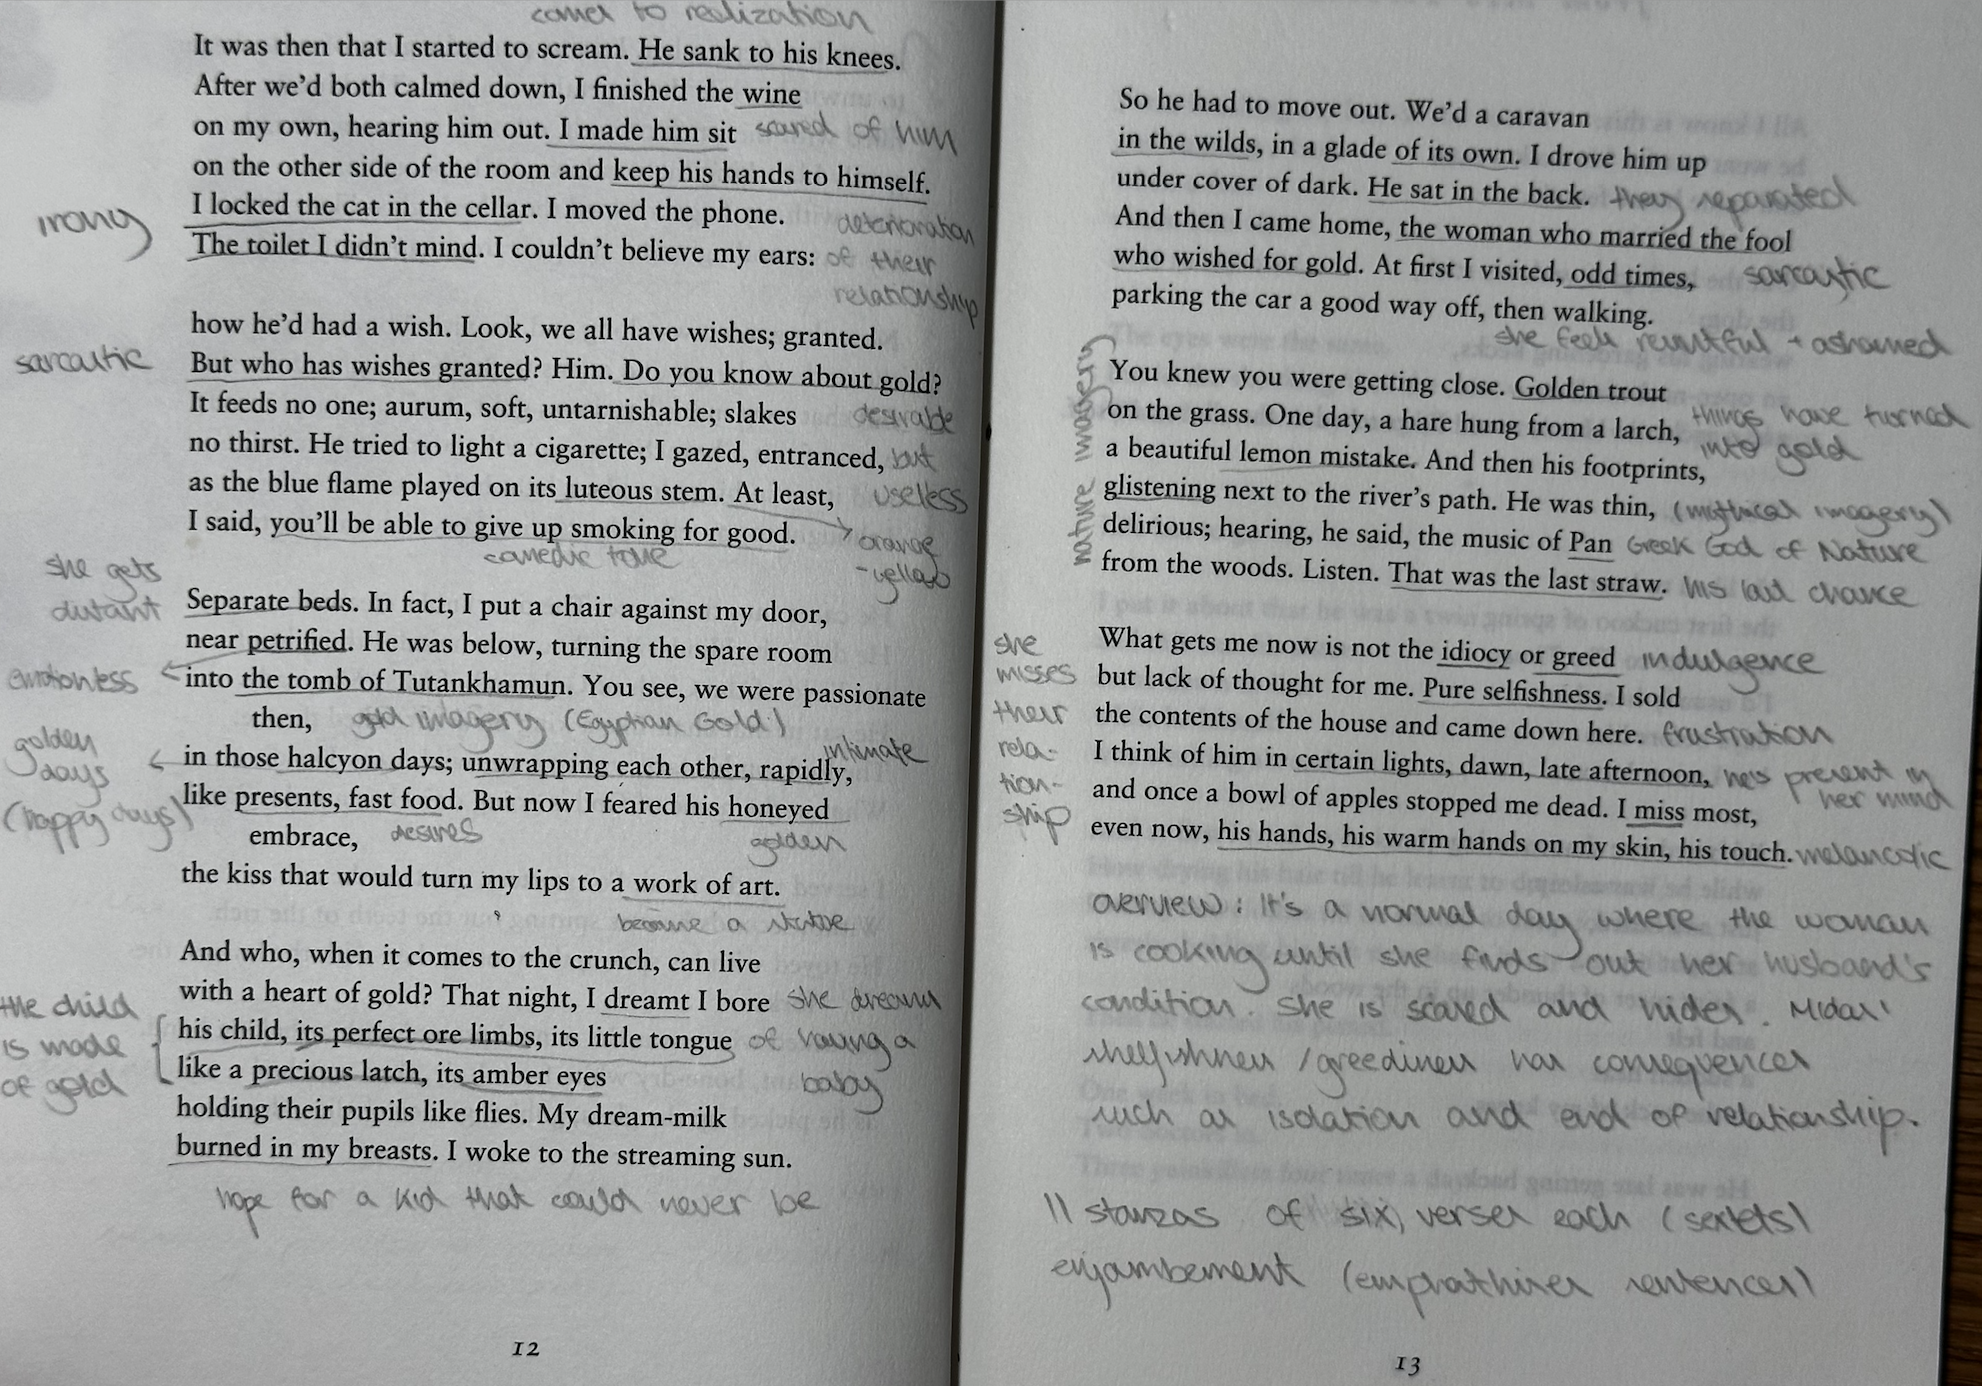 comes to realization
It was then that I started to scream. He sank to his knees.
After we'd both calmed down, I finished the wine
on my own, hearing him out. I made him sit scared of him
on the other side of the room and keep his hands to himself.
irony
I locked the cat in the cellar. I moved the phone. deterioration
The toilet I didn't mind. I couldn't believe my ears: of their
relationship
how he'd had a wish. Look, we all have wishes; granted.
sarcastic But who has wishes granted? Him. Do you know about gold?
It feeds no one; aurum, soft, untarnishable; slakes desirable
no thirst. He tried to light a cigarette; I gazed, entranced, but
as the blue flame played on its luteous stem. At least, useless
I said, you'll be able to give up smoking for good. orange
comedic tone -yellow
she gets
distant Separate beds. In fact, I put a chair against my door,
near petrified. He was below, turning the spare room
emotionless into the tomb of Tutankhamun. You see, we were passionate
then, gold imagery (Egyptian Gold)
intimate
golden
days in those halcyon days; unwrapping each other, rapidly,
(happy days) like presents, fast food. But now I feared his honeyed
embrace, desires golden
the kiss that would turn my lips to a work of art.
become a statue
And who, when it comes to the crunch, can live
the child with a heart of gold? That night, I dreamt I bore she dreams
is made his child, its perfect ore limbs, its little tongue of having a
of gold like a precious latch, its amber eyes baby
holding their pupils like flies. My dream-milk
burned in my breasts. I woke to the streaming sun.
hope for a kid that could never be
12
So he had to move out. We'd a caravan
in the wilds, in a glade of its own. I drove him up
under cover of dark. He sat in the back. they separated
And then I came home, the woman who married the fool
who wished for gold. At first I visited, odd times, sarcastic
parking the car a good way off, then walking.
she feels + ashamed
nature imagery
You knew you were getting close. Golden trout
on the grass. One day, a hare hung from a larch, things have turned
a beautiful lemon mistake. And then his footprints, into gold
glistening next to the river's path. He was thin, (mythical imagery)
delirious; hearing, he said, the music of Pan Greek God of Nature
from the woods. Listen. That was the last straw. his last chance
she
misses
their
rela-
tion-
ship
What gets me now is not the idiocy or greed indulgence
but lack of thought for me. Pure selfishness. I sold
the contents of the house and came down here. frustration
I think of him in certain lights, dawn, late afternoon, he's present in
her mind
and once a bowl of apples stopped me dead. I miss most,
even now, his hands, his warm hands on my skin, his touch. melancolic
overview: It's a normal day where the woman
is cooking until she finds out her husband's
condition. She is scared and hides. Midas'
shelfishness /greediness has consequences
such as isolation and end of relationship.
11 stanzas of six, verses each (sextets)
enjambement (emphathises sentences)
13